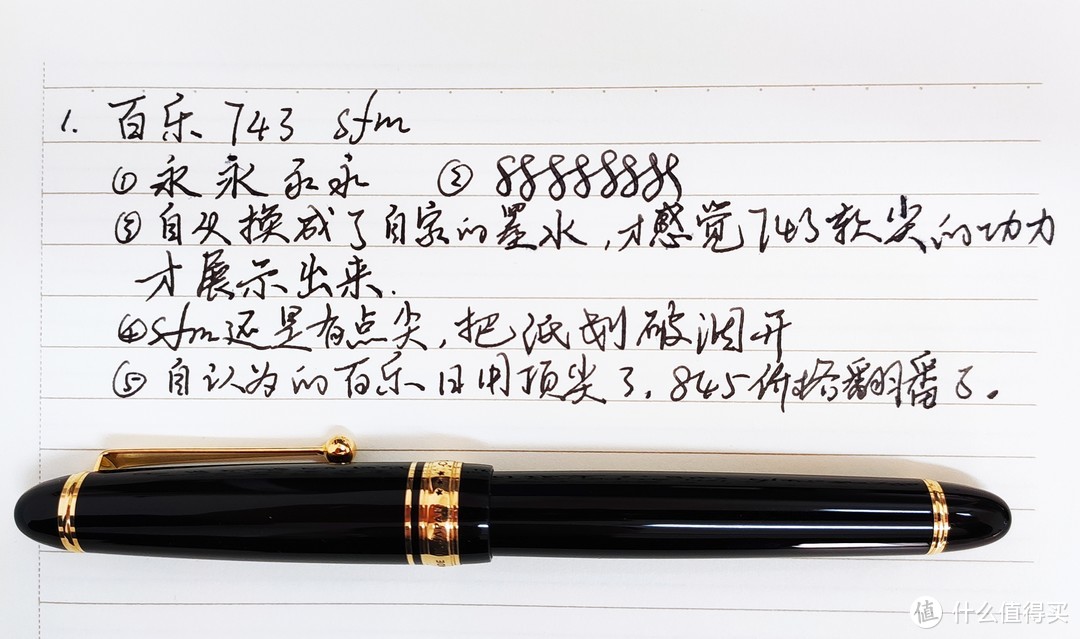 1. 百乐 743 sfm
① 永 永 永 永 ② 8888888888
③ 自从换成了自家的墨水,才感觉743软尖的功力
才展示出来.
④ sfm还是有点尖,把纸划破洇开
⑤ 自认为的百乐日用顶尖了,845价格翻番了。
值 什么值得买